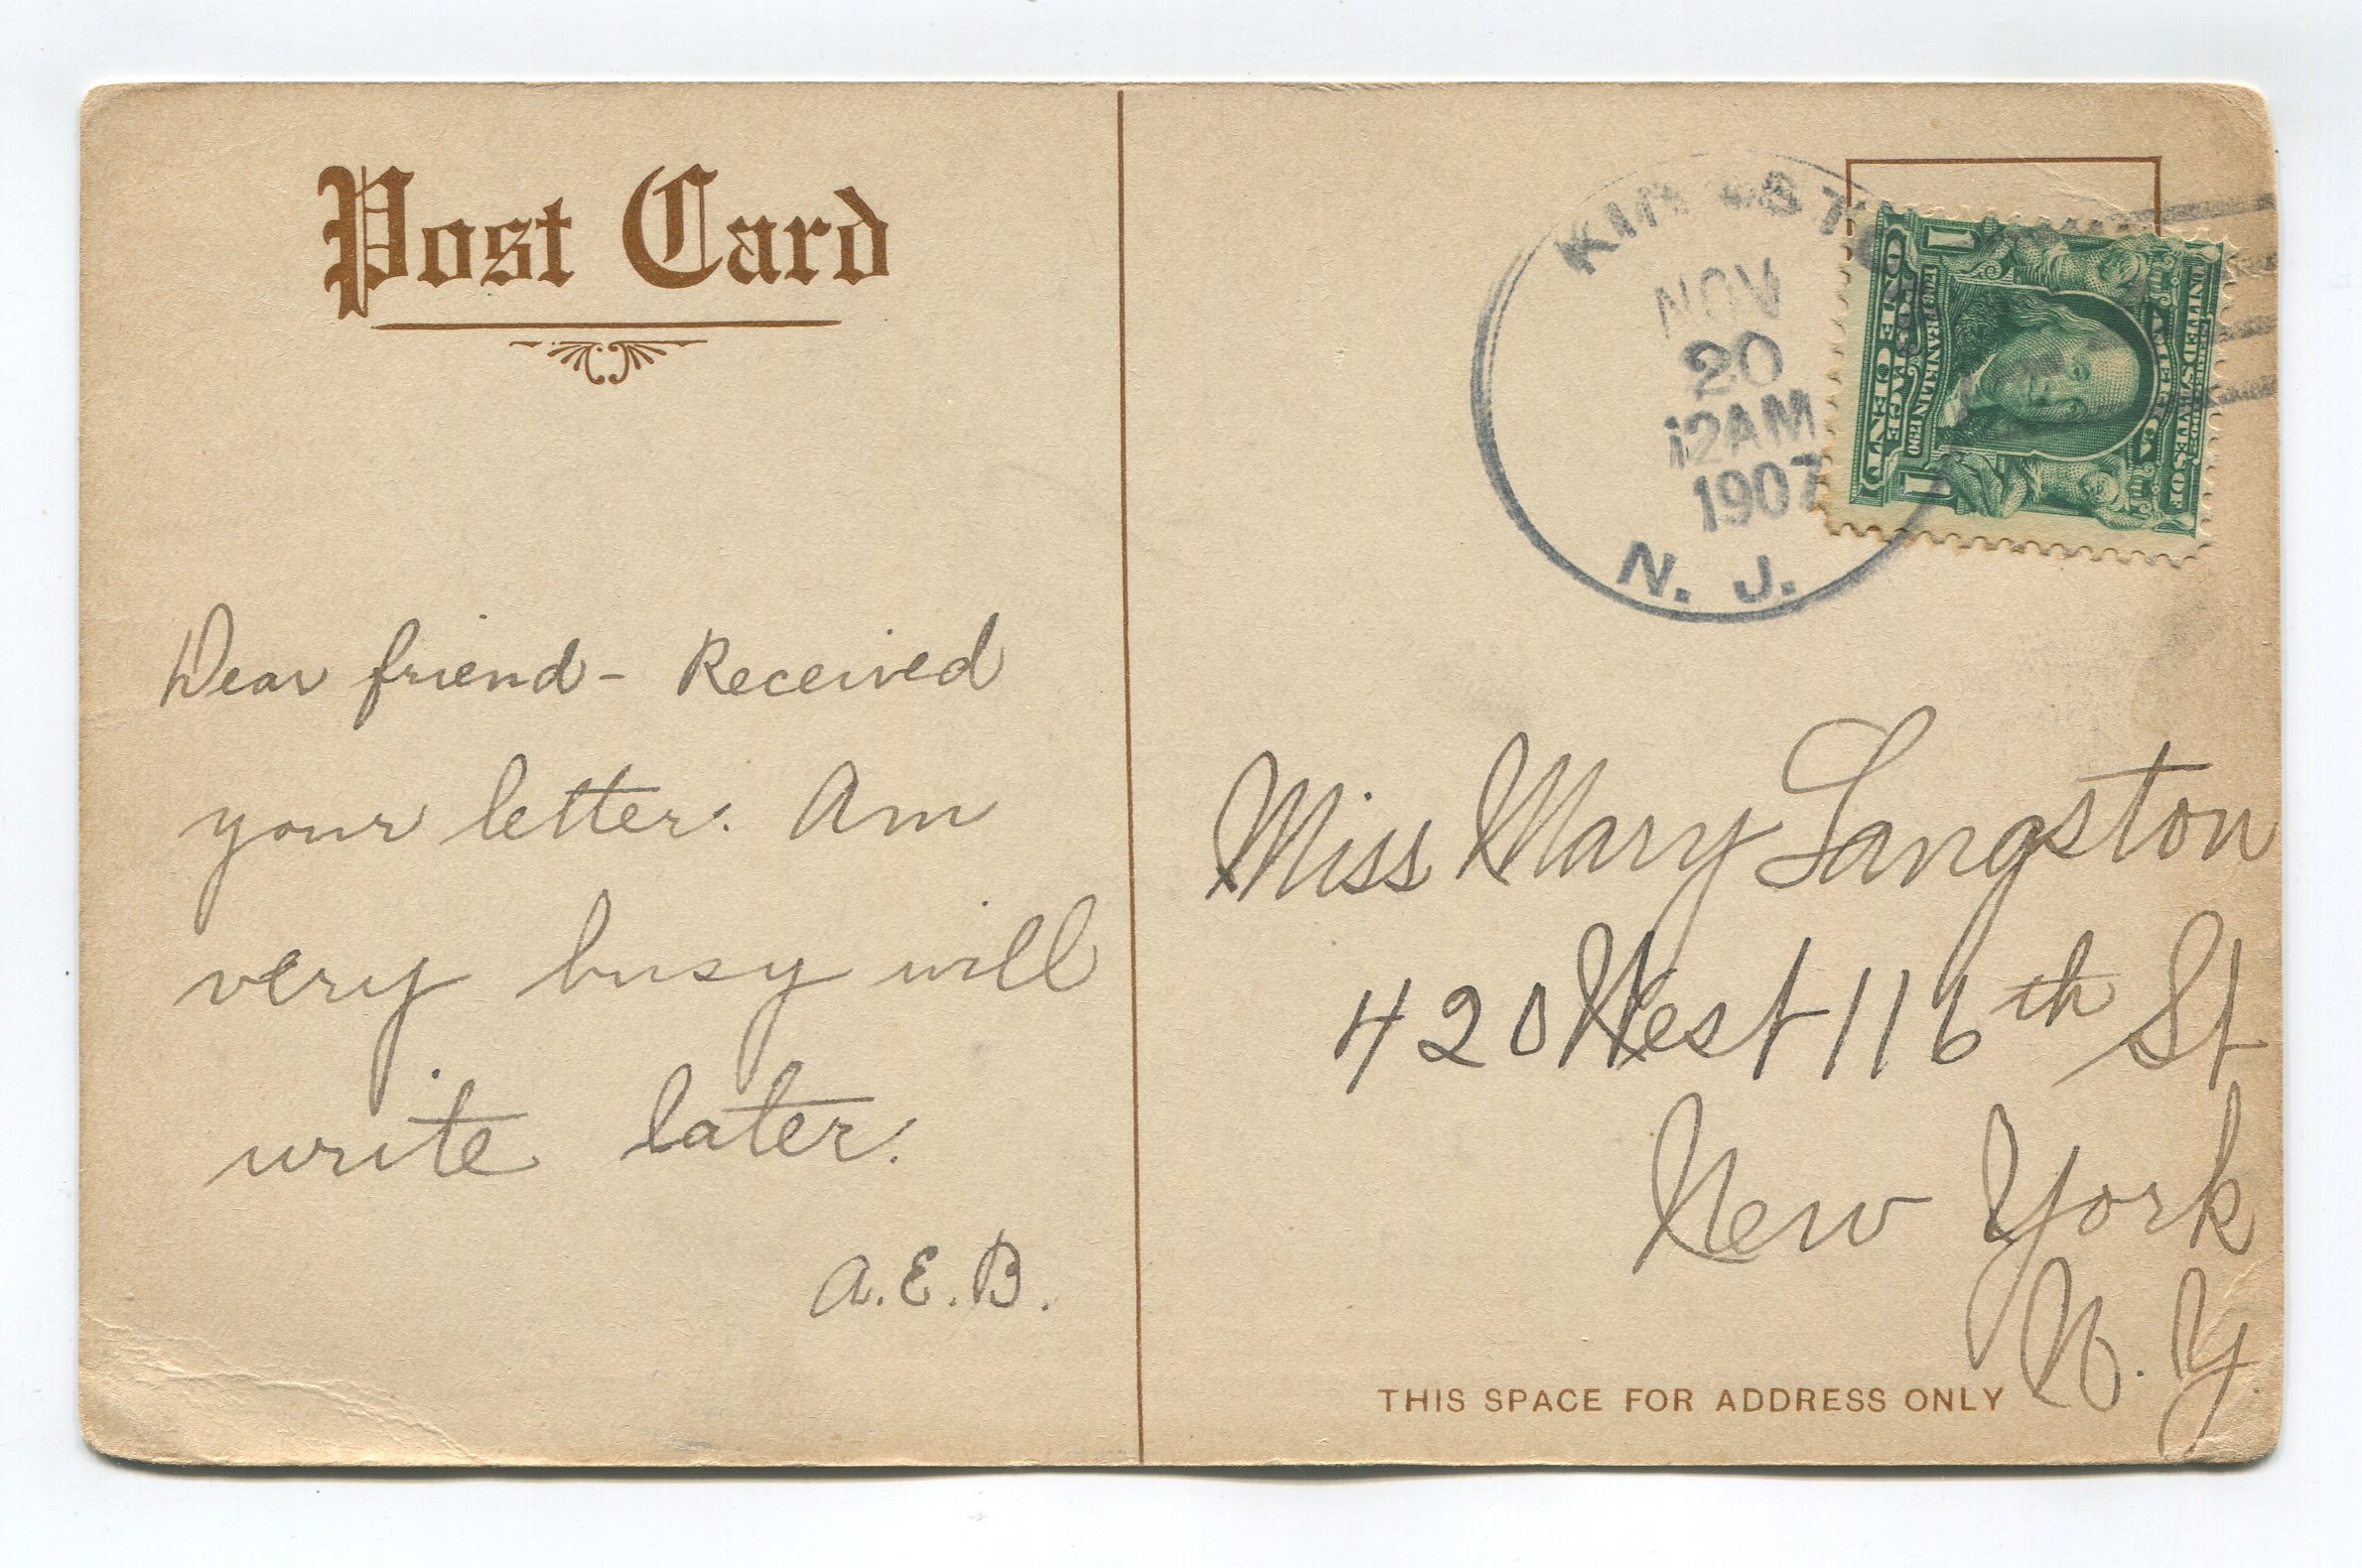 Post Card
NOV
20
12AM
1907
N. J.
UNITED STATES OF
AMERICA
FRANKLIN
POSTAGE
ONE CENT
1 1
Dear friend - Received
your letter. Am
very busy will
write later.
A.E.B.
Miss Mary Langston
420 West 116th St
New York
N. Y.
THIS SPACE FOR ADDRESS ONLY